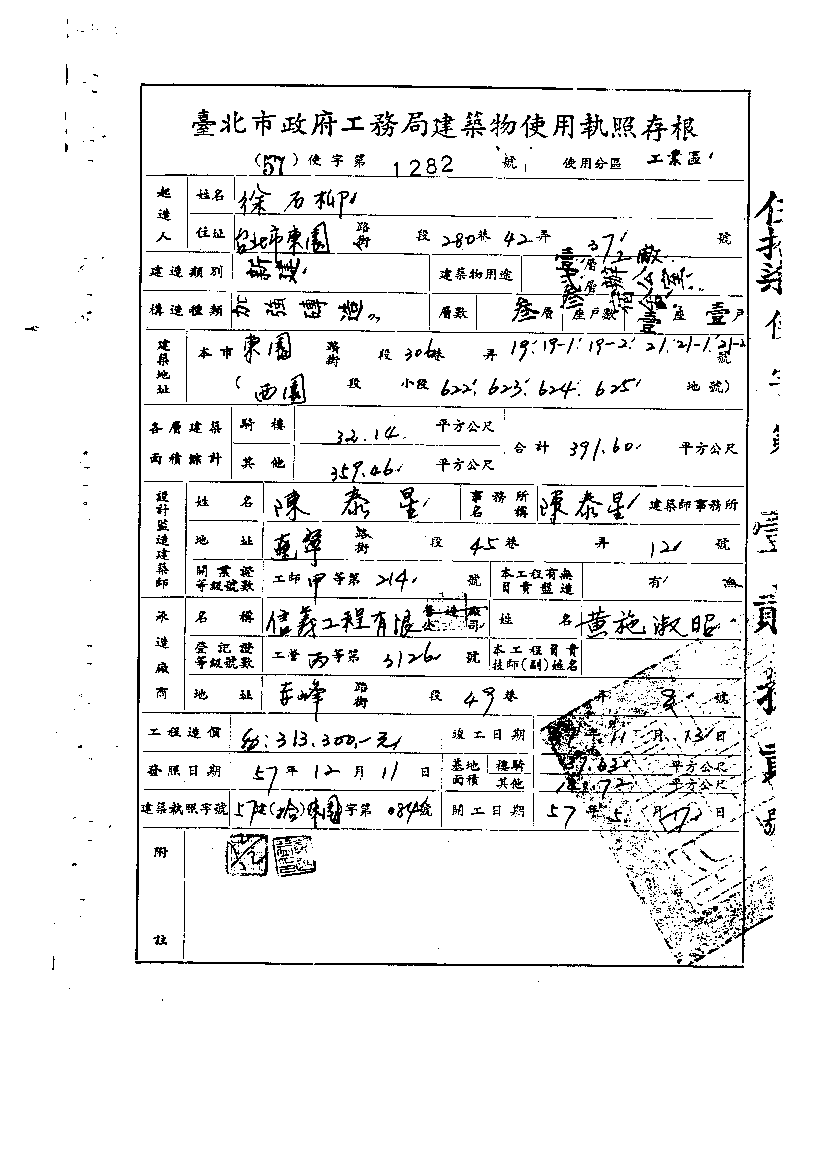 臺北市政府工務局建築物使用執照存根
(57)使字第 1282 號 使用分區 工業區
起造人 姓名 徐石柳
住址 台北市東園 路街 段 280巷 42弄 37 號
建造類別 新建 建築物用途 壹層 廠 叁層 辦公室 宿舍
構造種類 加強磚造 層數 叁層 座戶數 壹座 壹戶
建築地址 本市 東園 路街 段 306巷 弄 19.19-1.19-2.21.21-1.21-2 號
(西園 段 小段 622.623.624.625 地號)
各層建築面積總計 騎樓 32.14 平方公尺 合計 391.60 平方公尺
其他 359.46 平方公尺
設計監造建築師 姓名 陳泰星 事務所名稱 陳泰星 建築師事務所
地址 路街 段 45巷 弄 12 號
開業證等級號數 工師甲等第 214 號 本工程有無負責監造 有 無
承造廠商 名稱 信義工程有限公司 姓名 黃施淑昭
登記證等級號數 工營丙等第 3126 號 本工程負責技師(副)姓名
地址 赤峰 路街 段 49巷 弄 8 號
工程造價 313.300.-元 竣工日期 年 11 月 13 日
發照日期 57年 12月 11日 基地面積 騎樓 平方公尺
其他 平方公尺
建築執照字號 57建( )東園字第 084號 開工日期 57年 5月 日
附註